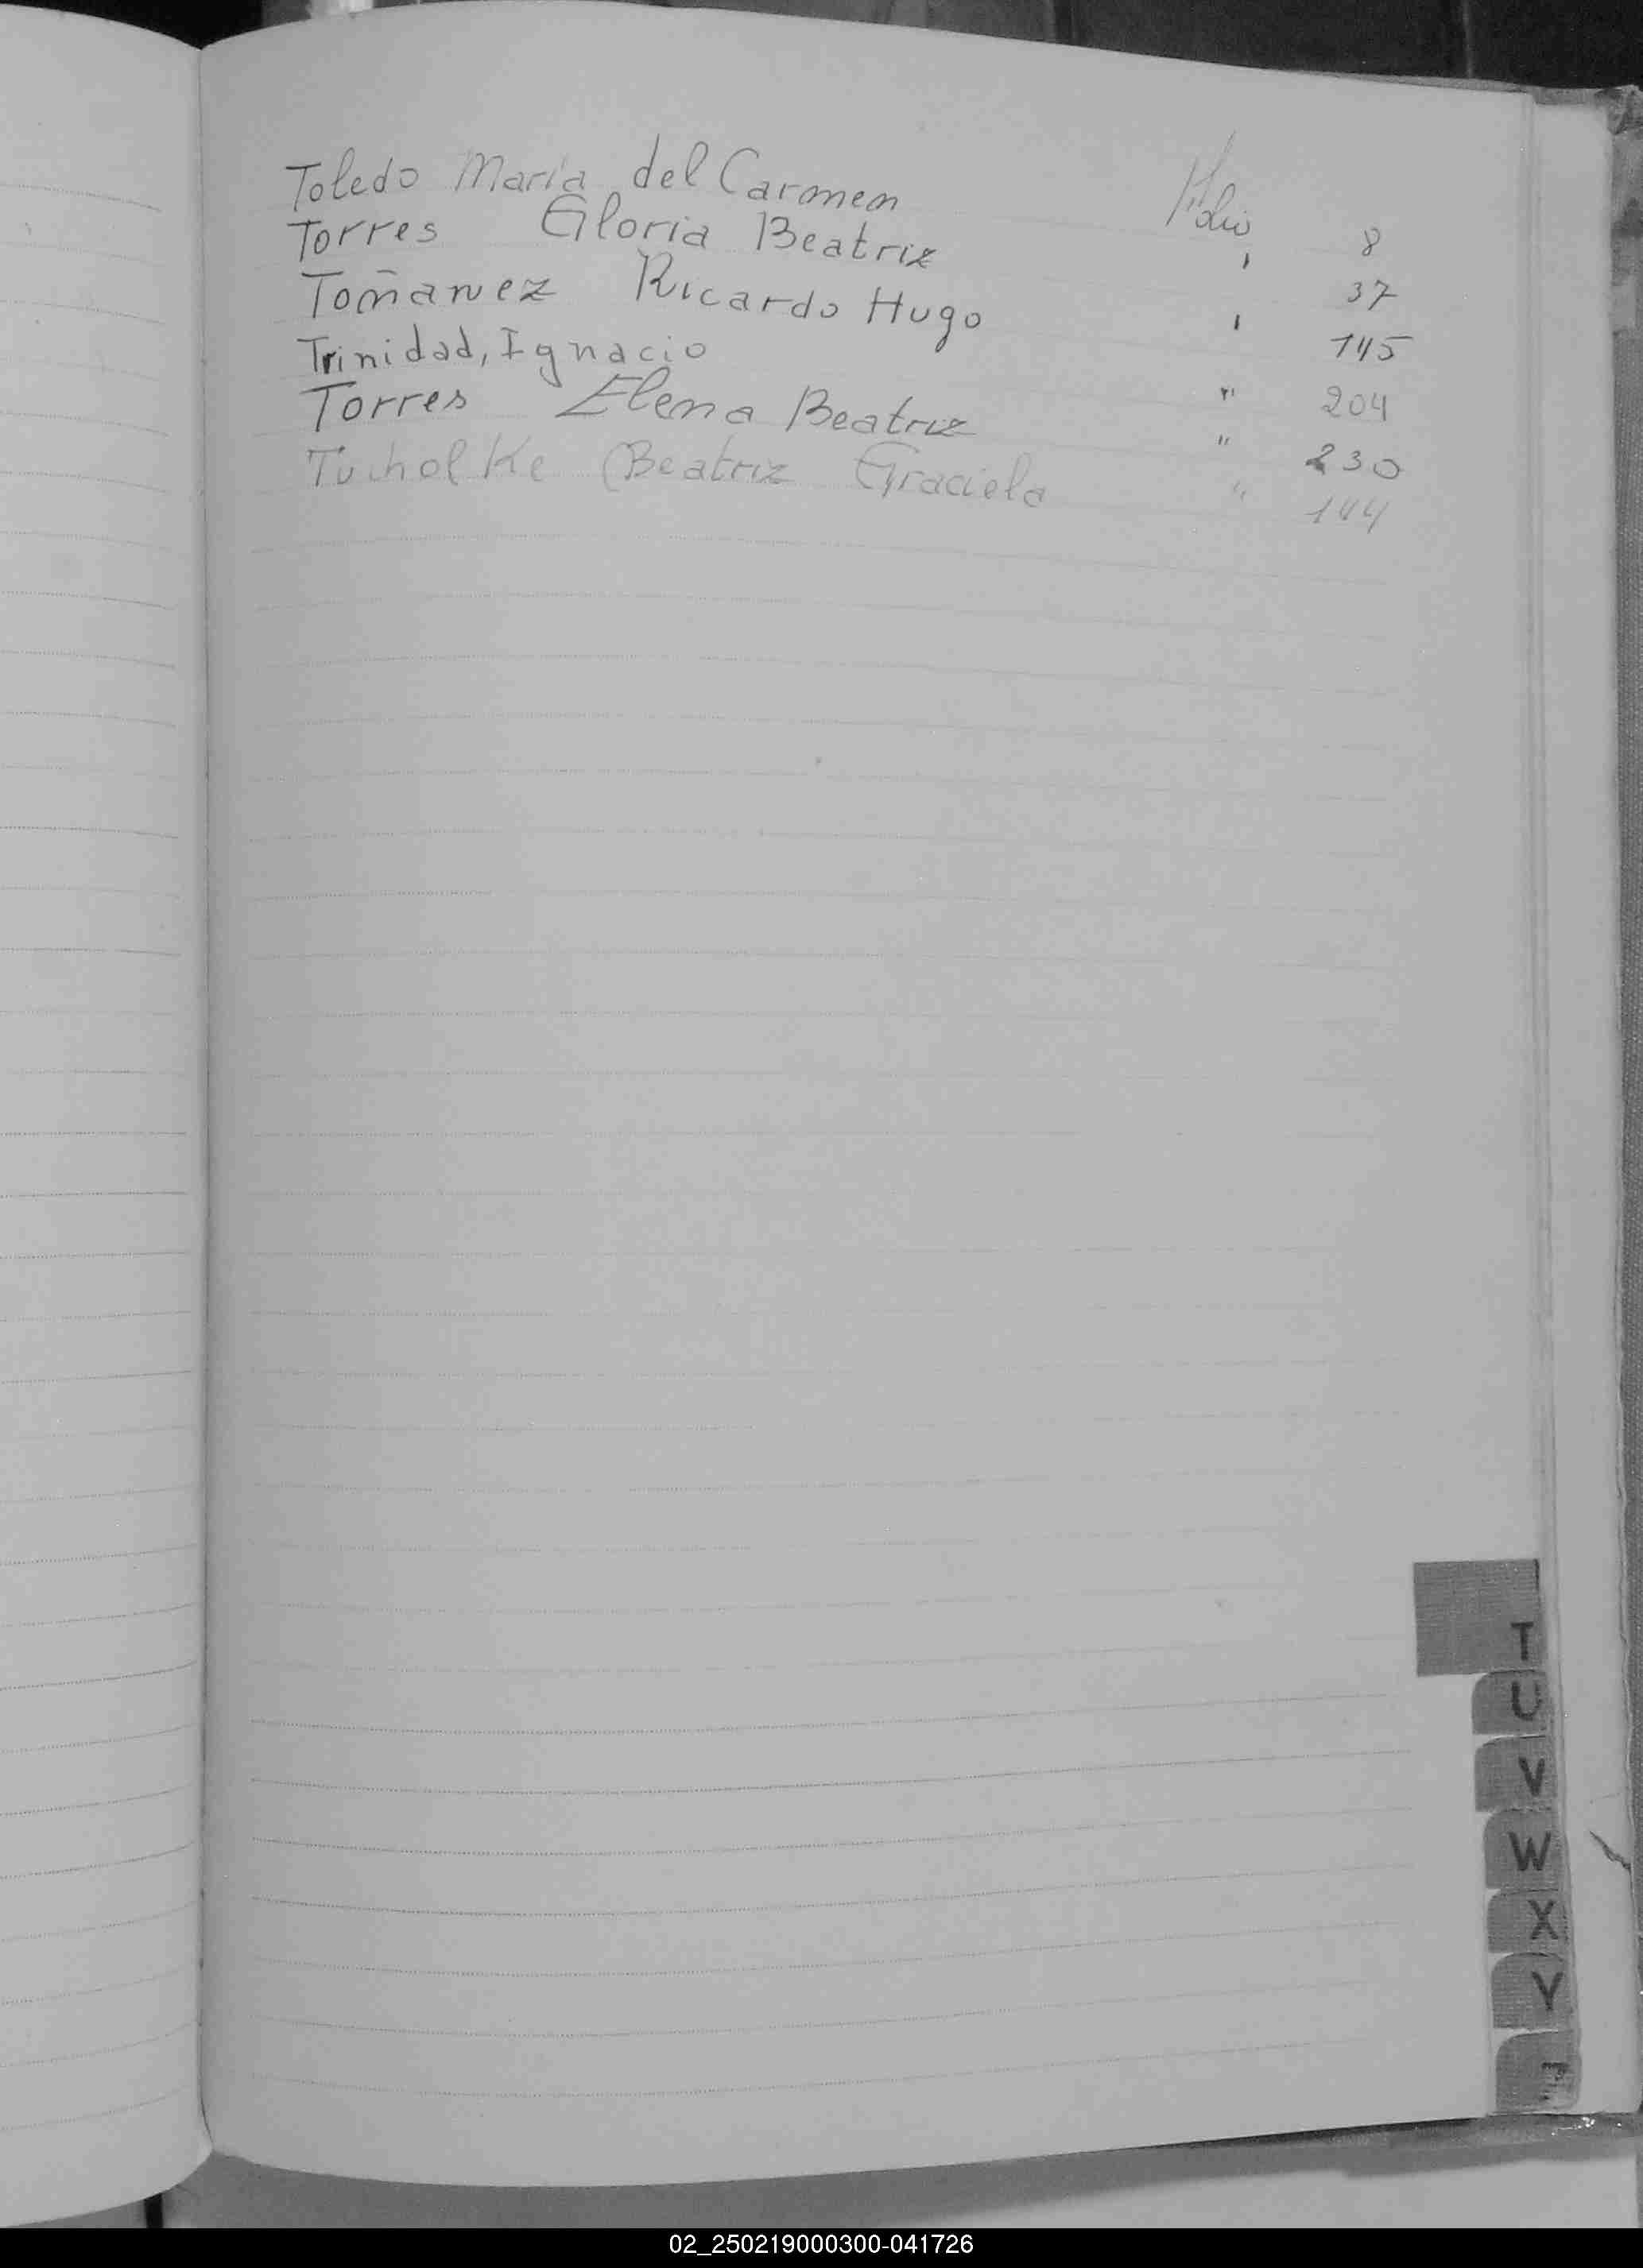 Toledo Maria del Carmen Folio 8
Torres Gloria Beatriz " 37
Toñanez Ricardo Hugo " 145
Trinidad, Ignacio " 204
Torres Elena Beatriz " 230
Tucholke Beatriz Graciela " 144
T
U
V
W
X
Y
02_250219000300-041726